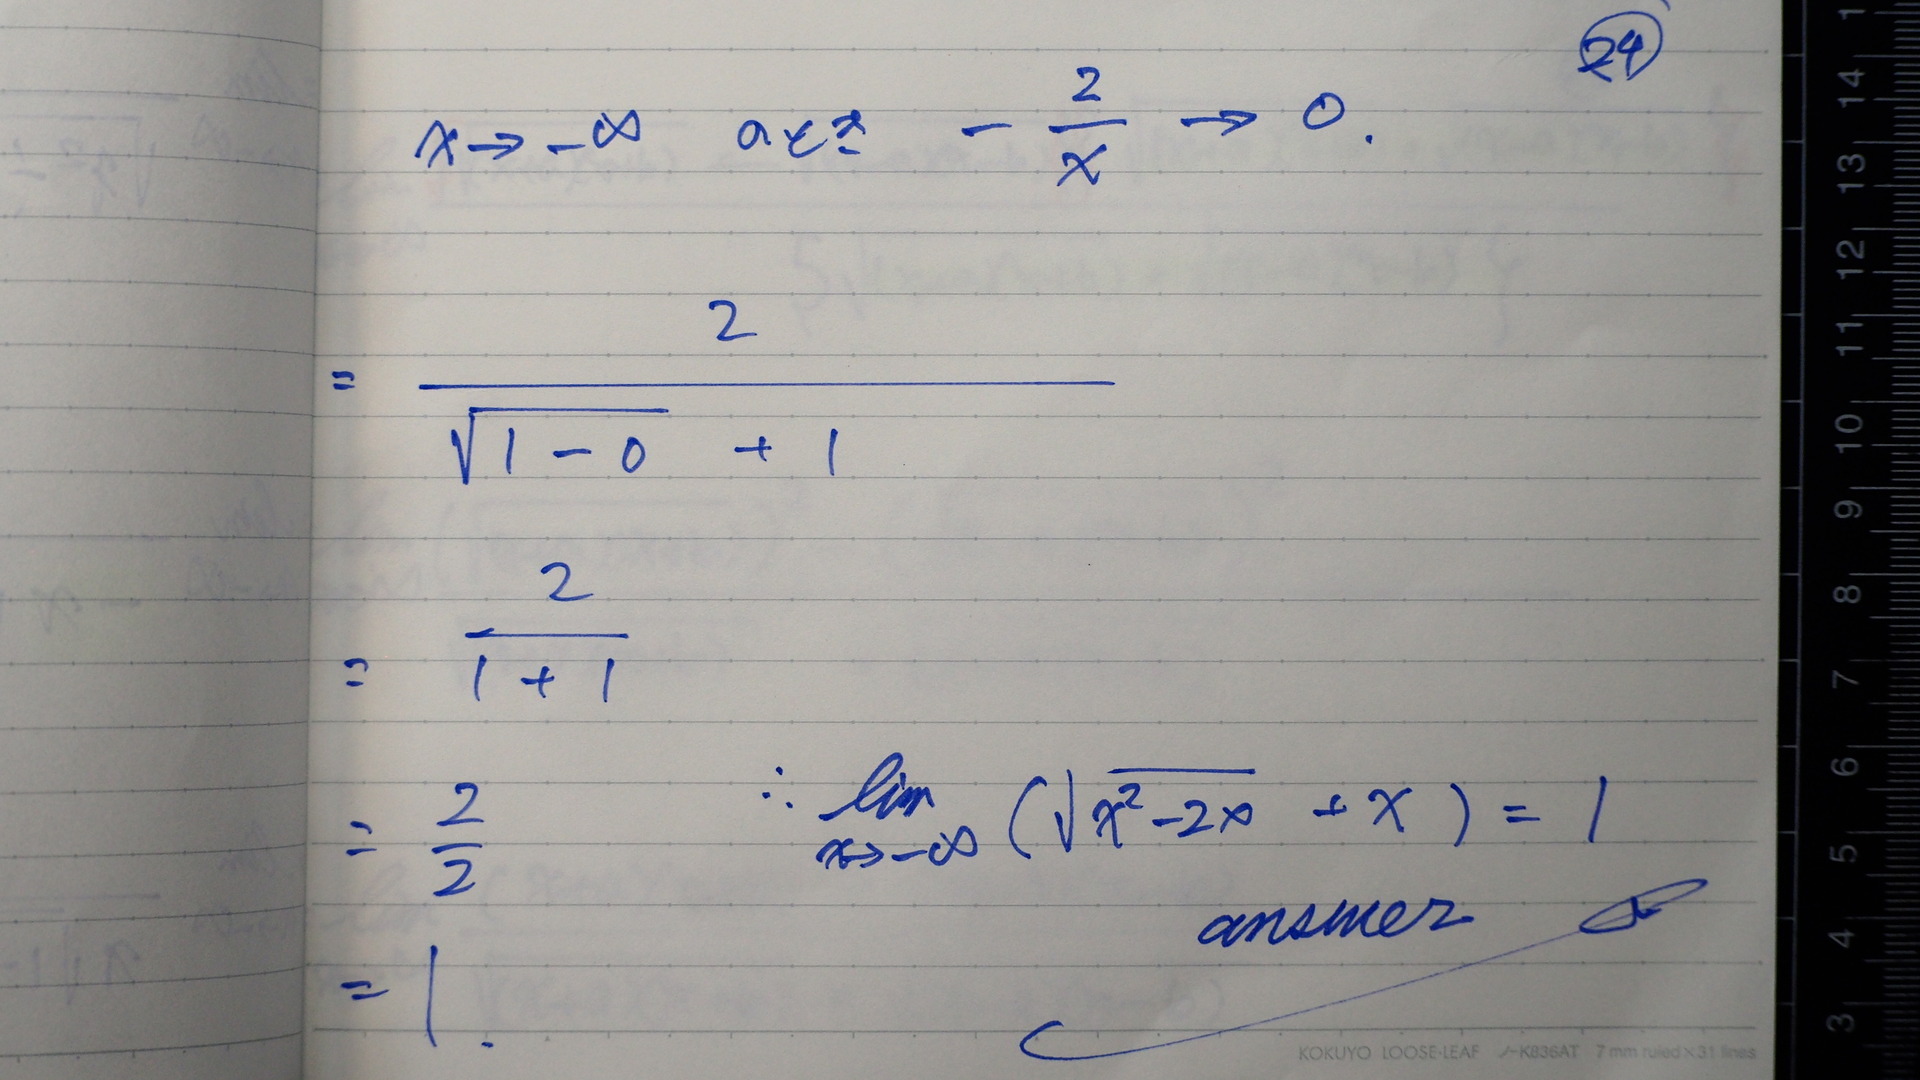 24
x → -∞ のとき - 2/x → 0.
= 2/(√(1 - 0) + 1)
= 2/(1 + 1)
= 2/2
∴ lim x→-∞ (√(x² - 2x) + x) = 1
answer
= 1.
KOKUYO LOOSE-LEAF ノ-K836AT 7 mm ruled × 31 lines
1
14
13
12
11
10
9
8
7
6
5
4
3